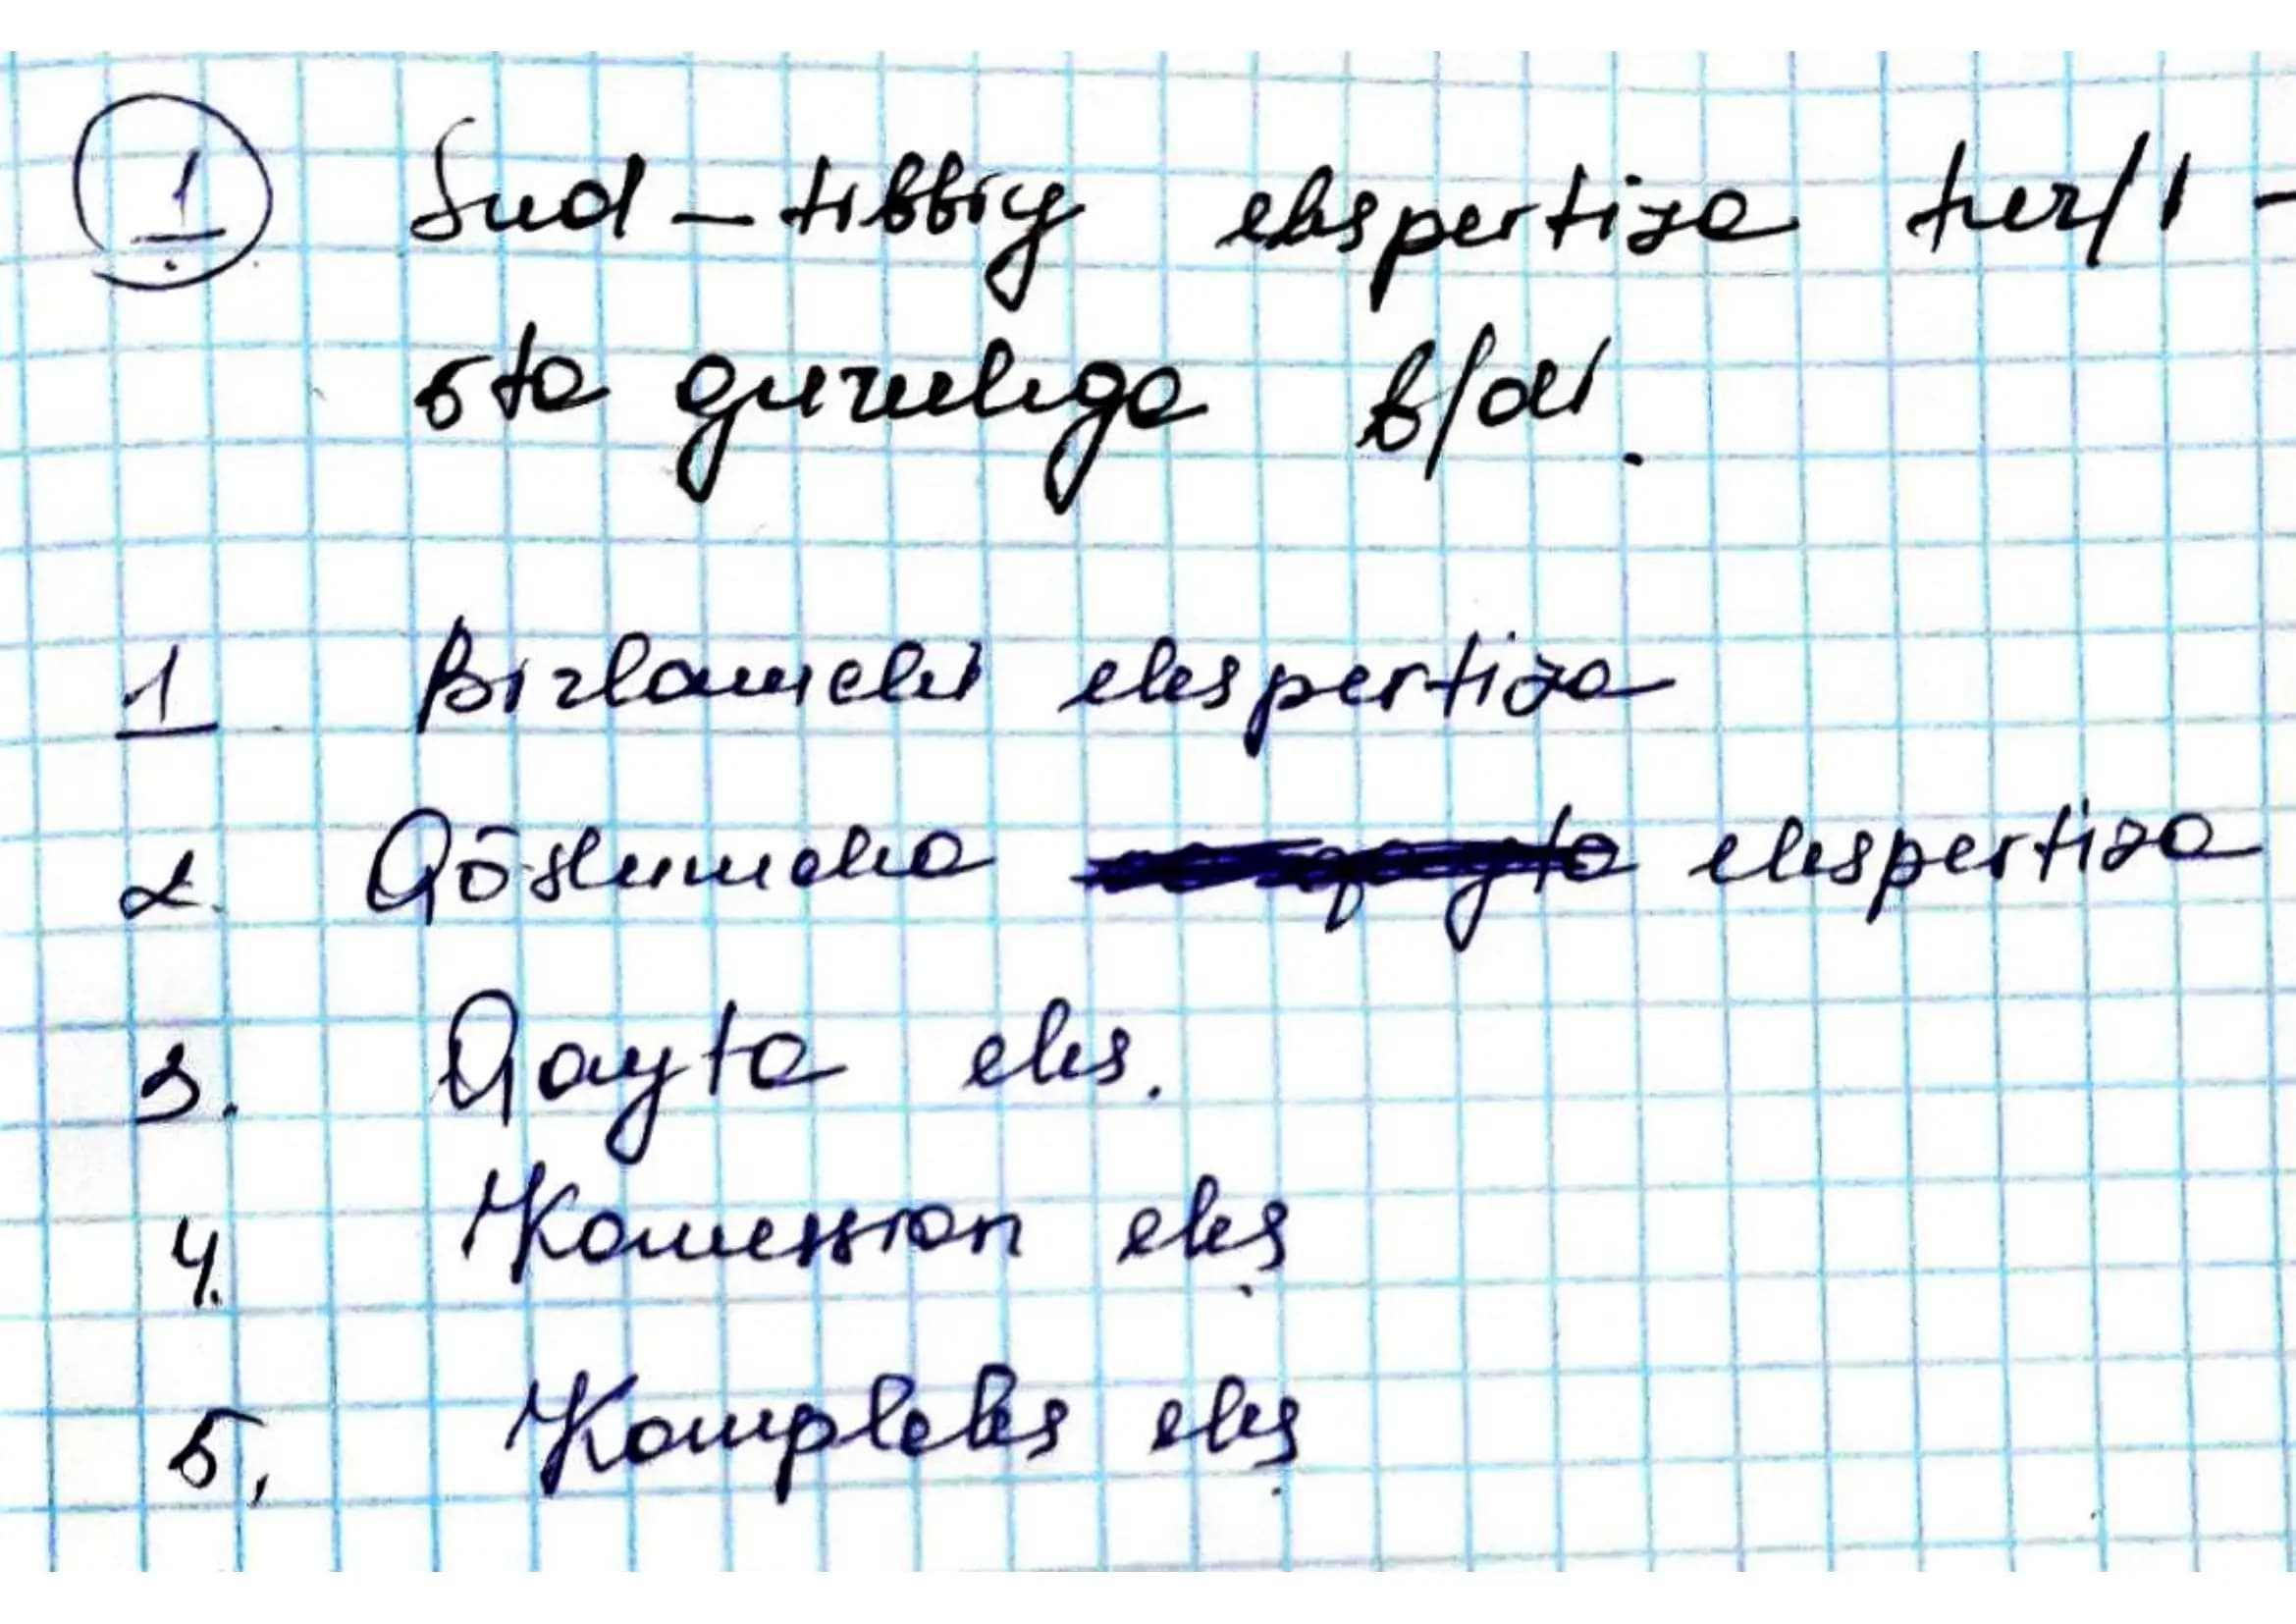 1. Sud-tibbiy ekspertiza tur/i -
5ta guruhga b/di.
1 Birlamchi ekspertiza
2. Qõshimcha ekspertiza
3. Qayta eks.
4. Komission eks.
5. Kompleks eks.